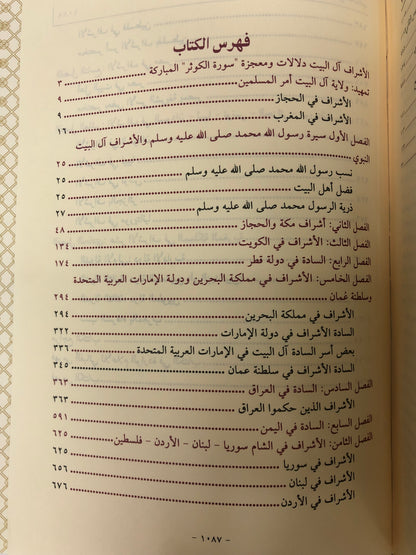 فهرس الكتاب
الأشراف آل البيت دلالات ومعجزة "سورة الكوثر" المباركة ٣
تمهيد: ولاية آل البيت أمر المسلمين ٩
الأشراف في الحجاز ٩
الأشراف في المغرب ١٦
الفصل الأول سيرة رسول الله محمد صلى الله عليه وسلم والأشراف آل البيت
النبوي ٢٥
نسب رسول الله محمد صلى الله عليه وسلم ٢٥
فضل أهل البيت ٢٥
ذرية الرسول محمد صلى الله عليه وسلم ٢٧
الفصل الثاني: أشراف مكة والحجاز ٤٨
الفصل الثالث: الأشراف في الكويت ١٣٤
الفصل الرابع: السادة في دولة قطر ١٧٤
الفصل الخامس: الأشراف في مملكة البحرين ودولة الإمارات العربية المتحدة
وسلطنة عُمان ٢٩٤
الأشراف في مملكة البحرين ٢٩٤
السادة الأشراف في دولة الإمارات ٣٢٢
بعض أسر السادة آل البيت في الإمارات العربية المتحدة ٣٣٦
الأشراف في سلطنة عمان ٣٤٥
الفصل السادس: السادة في العراق ٣٦٣
الأشراف الذين حكموا العراق ٣٦٣
الفصل السابع: السادة في اليمن ٥٩١
الفصل الثامن: الأشراف في الشام سوريا - لبنان - الأردن - فلسطين ٦٢٥
الأشراف في سوريا ٦٢٥
الأشراف في لبنان ٦٥٦
الأشراف في الأردن ٦٧٦
- ١٠٨٧ -